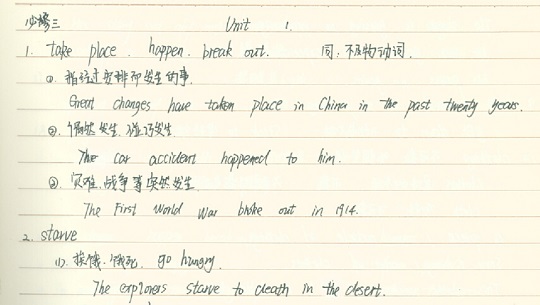 必修三 Unit 1.
1. take place . happen . break out. 同:不及物动词.
①. 指经过安排而发生的事.
Great changes have taken place in China in the past twenty years.
②. 偶然发生.碰巧发生
The car accident happened to him.
③. 灾难.战争等突然发生.
The First World War broke out in 1914.
2. starve
(1). 挨饿.饿死. go hungry.
The explorers starve to death in the desert.